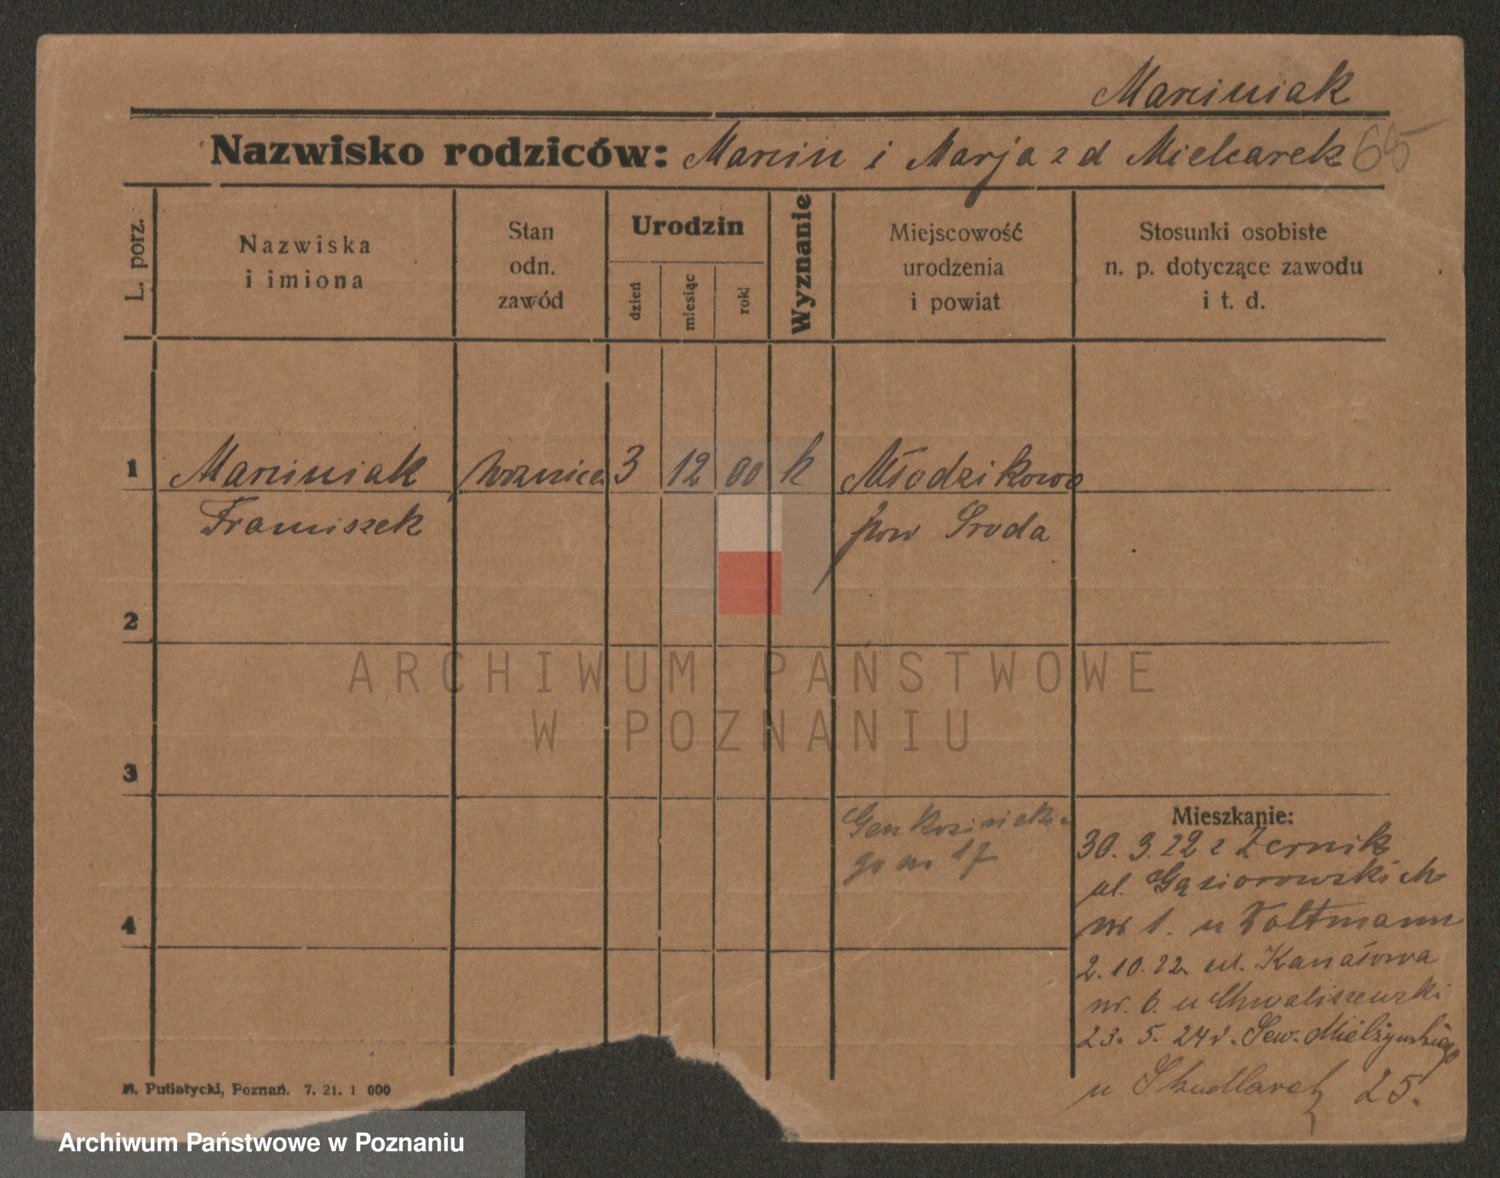 Marciniak
Nazwisko rodziców: Marcin i Marja z d Mielcarek 65
L. porz.
Nazwiska
i imiona
Stan
odn.
zawód
Urodzin
dzień
miesiąc
rok
Wyznanie
Miejscowość
urodzenia
i powiat
Stosunki osobiste
n. p. dotyczące zawodu
i t. d.
1 Marciniak 3 12 00 k Młodzikowo
Franciszek pow Sroda
2
ARCHIWUM PAŃSTWOWE
W POZNANIU
3
Mieszkanie:
Gen
17
30. 3. 22 z Żernik
ul. Gąsiorowskich
nr 1. u
4
2. 10. 22. ul. Kanałowa
nr. 6. u Chwaliszewski
23. 5. 24 Sew. Mielżyńskiego
u 25.
M. Putiatycki, Poznań. 7. 21. 1 000
Archiwum Państwowe w Poznaniu